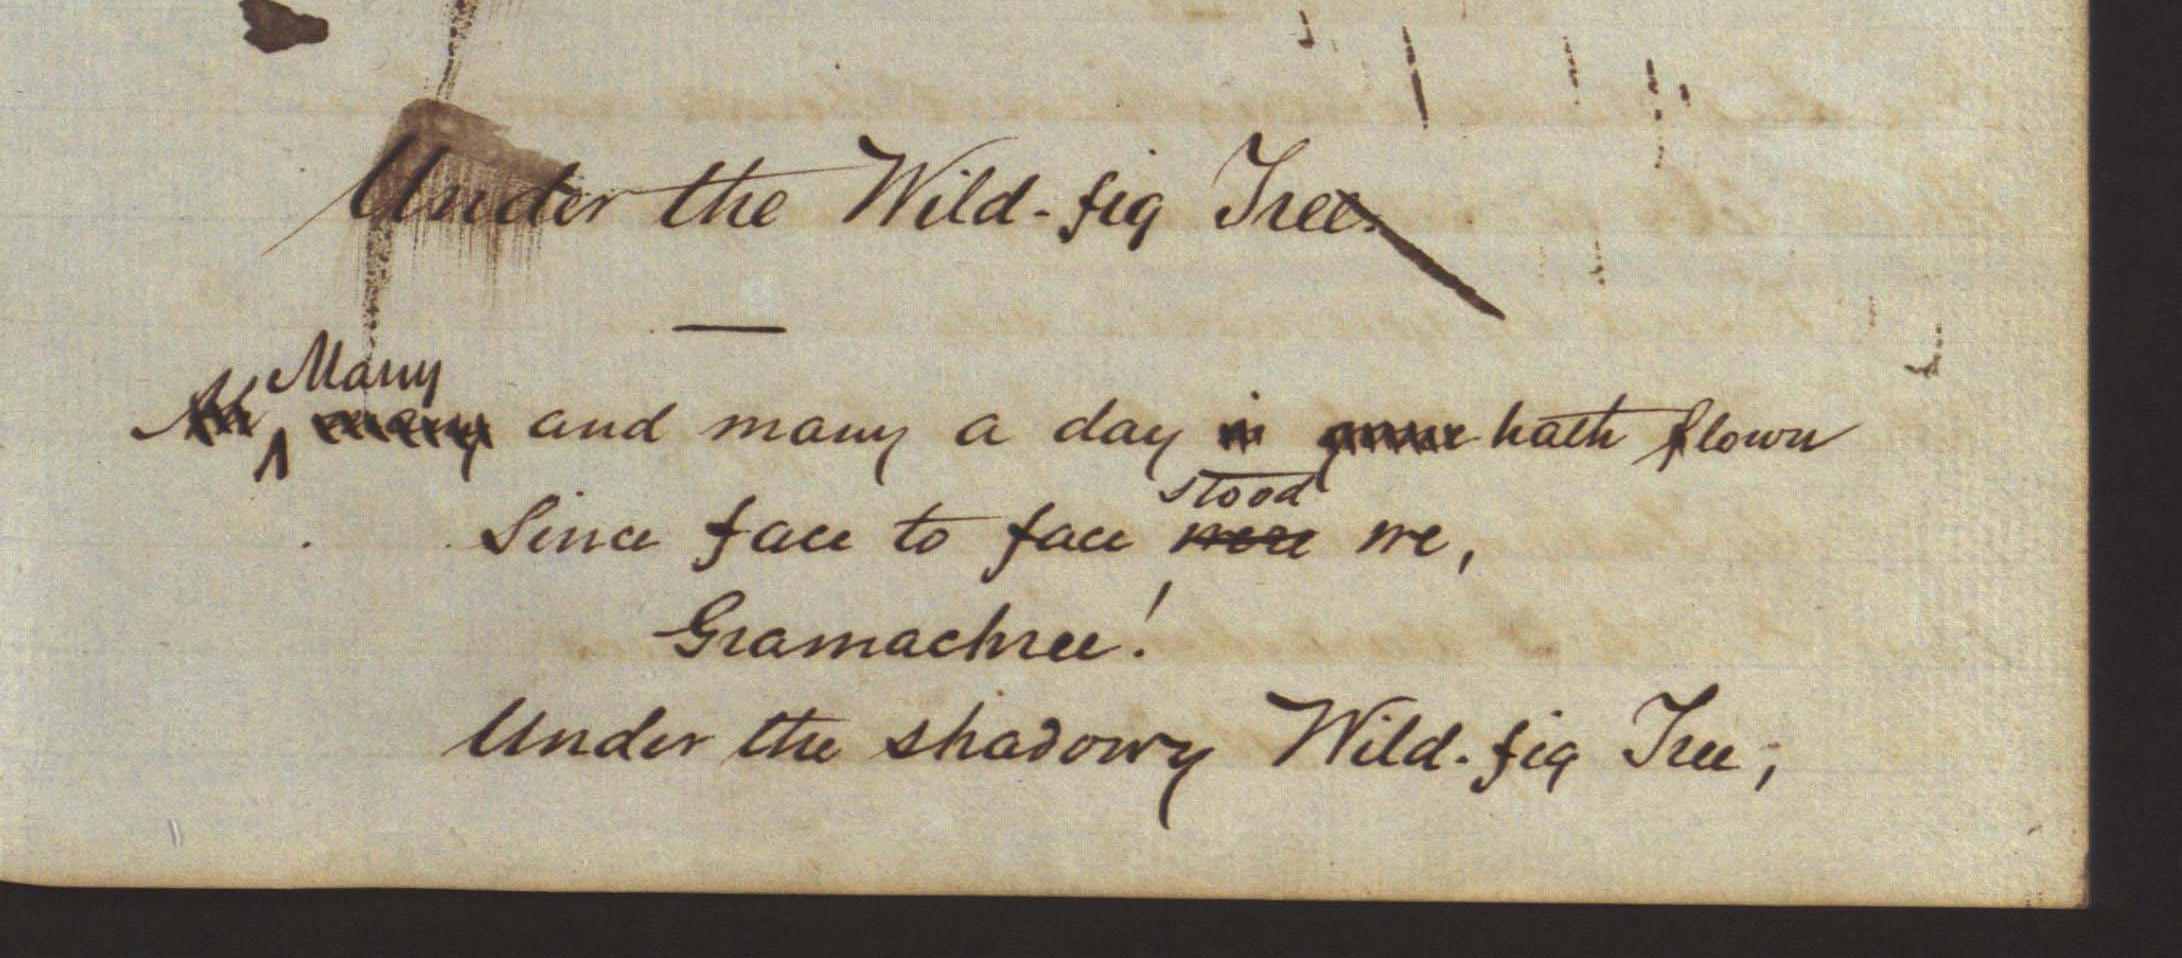 Under the Wild-fig Tree.
Many
many and many a day is gone hath flown
stood
Since face to face were we,
Gramachree!
Under the shadowy Wild-fig Tree;